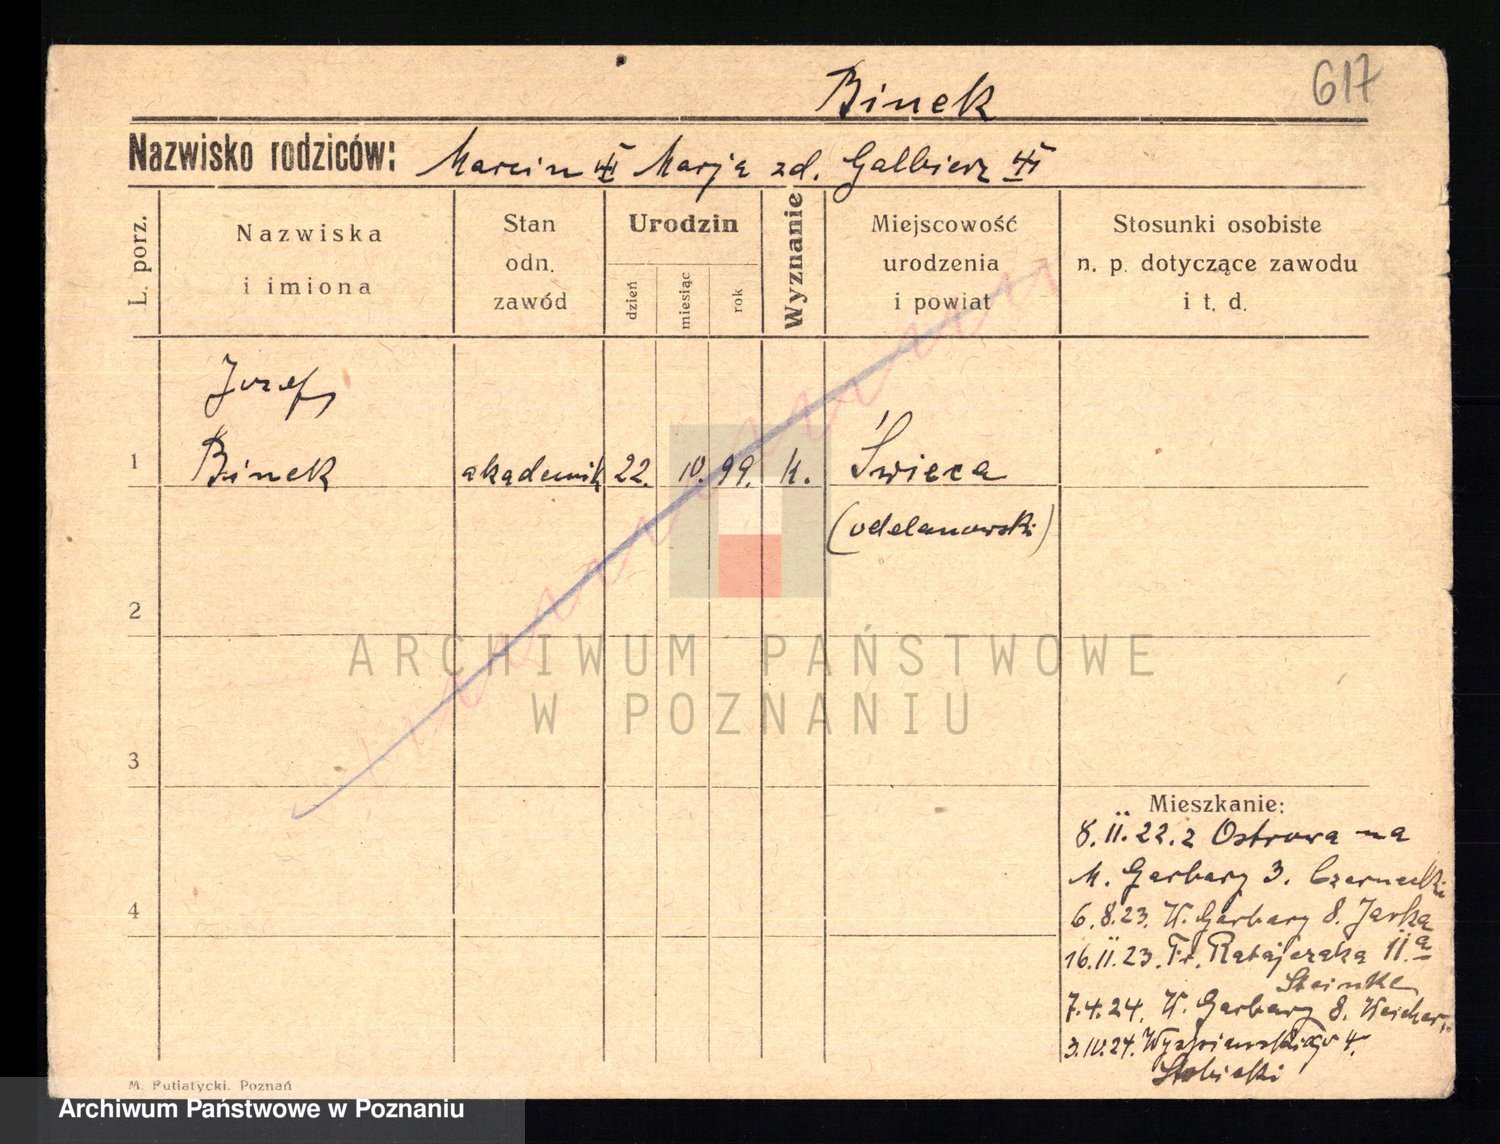 617
Binek
Nazwisko rodziców: Marcin Marja zd. Galbierz
L. porz.
Nazwiska
i imiona
Stan
odn.
zawód
Urodzin
dzień
miesiąc
rok
Wyznanie
Miejscowość
urodzenia
i powiat
Stosunki osobiste
n. p. dotyczące zawodu
i t. d.
Jozef
1 Binek akademik 22. 10. 99. k. Świeca
(odolanowski)
2
3
4
Mieszkanie:
8.II.22. z Ostrowa na
M. Garbary 3. Czarnecki
6.8.23. W. Garbary 8. Jaska
16.II.23. Fr. Ratajczaka 11a
Steinke
7.4.24. W. Garbary 8.
3.10.24. Wyspianskiego 4.
Stobiecki
M. Putiatycki. Poznań
ARCHIWUM PAŃSTWOWE
W POZNANIU
Archiwum Państwowe w Poznaniu